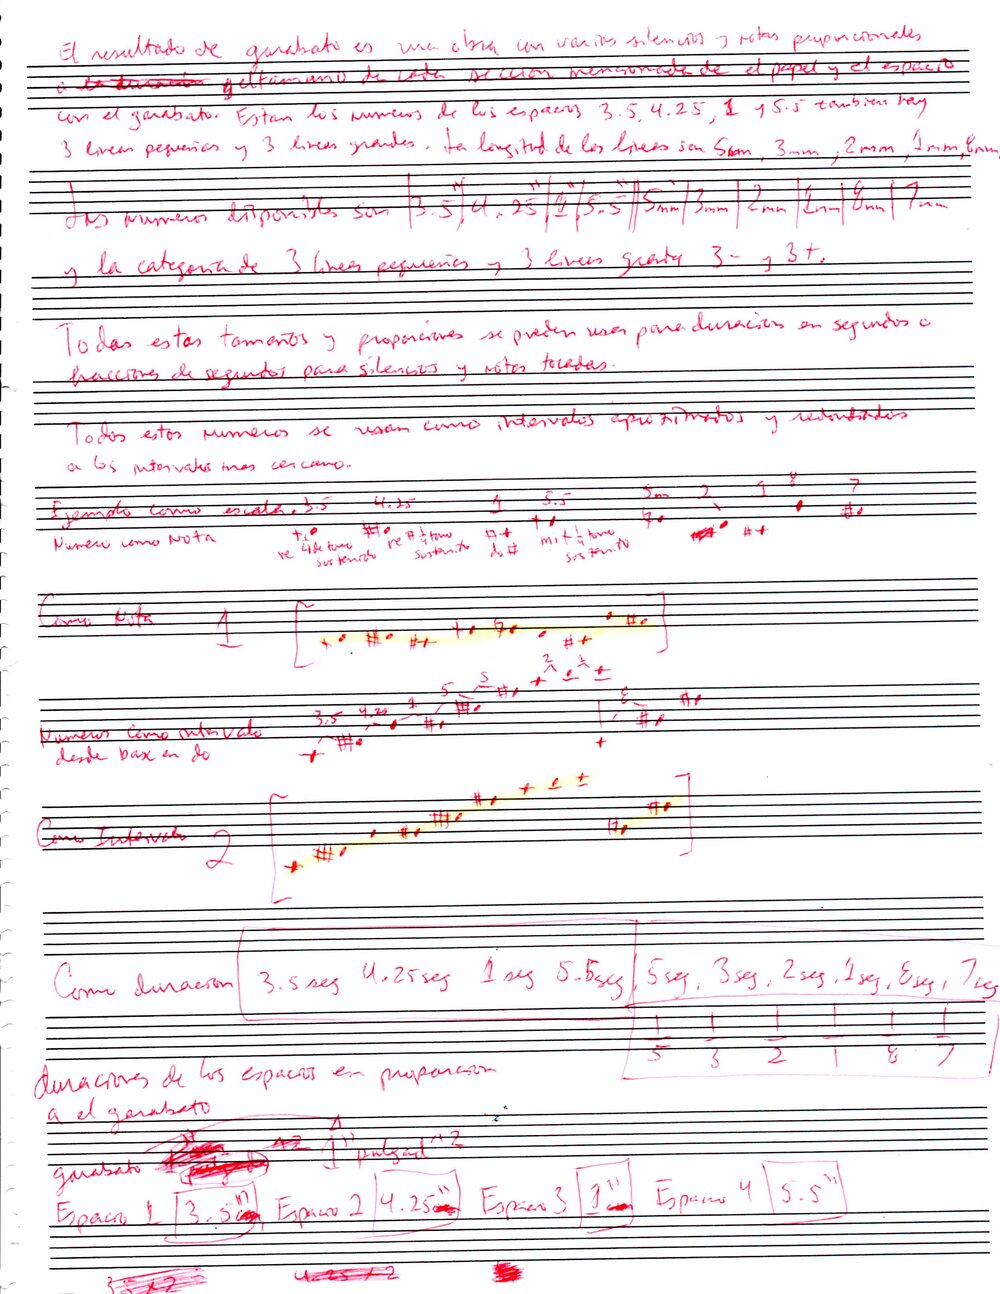 El resultado de garabato es una obra con varios silencios y notas proporcionales
a la duracion y el tamano de cada seccion mencionada de el papel y el espacio
con el garabato. Estan los numeros de los espacios 3.5, 4.25, 1 y 5.5 tambien hay
3 lineas pequeñas y 3 lineas grandes. La longitud de las lineas son 5mm, 3mm, 2mm, 1mm, 8mm,
Los numeros disponibles son |3.5"| 4.25"|1"|5.5"||5mm|3mm|2mm|1mm|8mm|7mm
y la categoria de 3 lineas pequeñas y 3 lineas grandes 3- y 3+.
Todas estas tamaños y proporciones se pueden usar para duracion en segundos o
fracciones de segundos para silencios y notas tocadas.
Todos estos numeros se usan como intervalos aproximados y redondeados
a los intervalos mas cercano.
Ejemplo como escala. 3.5 4.25 1 5.5 5m 2 1 8 7
Numero como Nota re 1/4 de tono sostenido re # 1/4 tono sostenido do # mi + 1/4 tono sostenido
Como Nota 1
3.5 4.25 1 5 5 2 1 8
Numeros como intervalo
desde base en do
Como Intervalo 2
Como duracion 3.5 seg 4.25 seg 1 seg 5.5 seg, 5 seg, 3 seg, 2 seg, 1 seg, 8 seg, 7 seg
1/5 1/3 1/2 1/1 1/8 1/7
duraciones de los espacios en proporcion
a el garabato
garabato 1" pulgad "2
Espacio 1 3.5" Espacio 2 4.25" Espacio 3 1" Espacio 4 5.5"
3.5 x 2 4.25 x 2